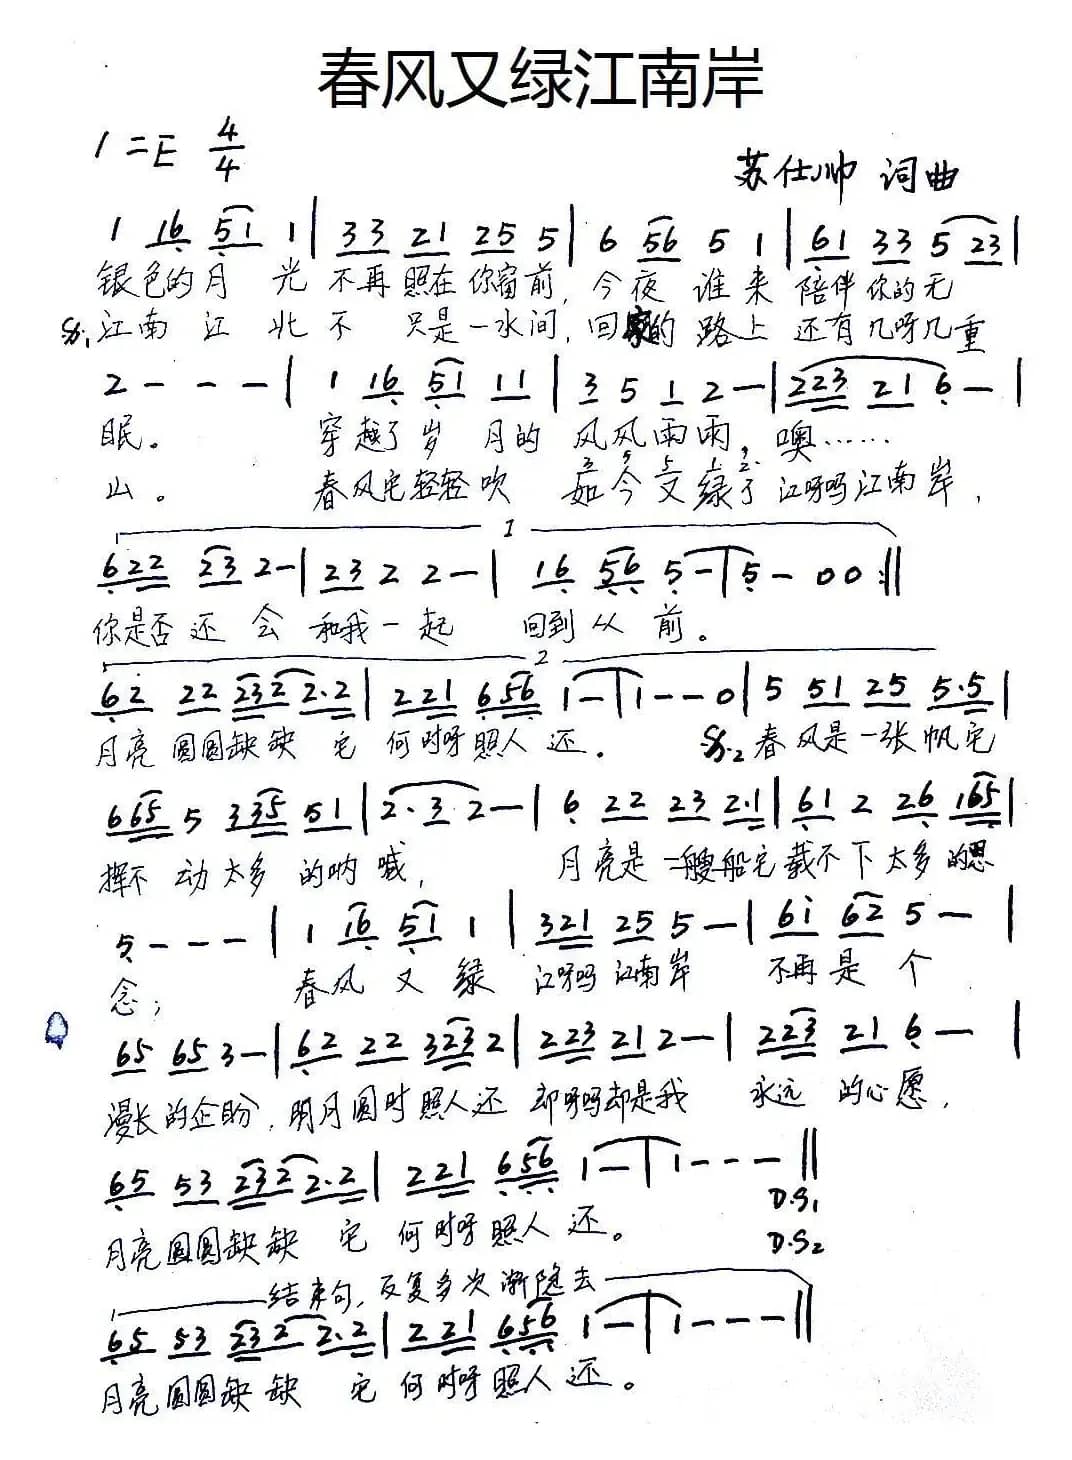 春风又绿江南岸
1=E 4/4
苏仕帅 词曲
1 16 51 1 | 33 21 25 5 | 6 56 5 1 | 61 33 5 23 |
银色的月 光 不再 照在你窗前, 今夜 谁来 陪伴你的无
𝄋1 江南 江 北 不 只是一水间, 回家的 路上 还有几呀几重
2 - - - | 1 16 51 11 | 3 5 1 2 - | 223 21 6 - |
眠。 穿越了岁 月的 风风雨雨, 噢……
3 5 5 1 2
山。 春风它轻轻吹 如今又绿了 江呀吗江南岸,
1
622 23 2 - | 23 2 2 - | 16 56 5 - | 5 - 0 0 :||
你是否 还 会 和我一起 回到从 前。
2
62 22 232 2·2 | 221 656 1 - | 1 - - 0 | 5 51 25 5·5 |
月亮 圆圆缺缺 它 何时呀照人 还。 𝄋2 春风是一张帆它
665 5 335 51 | 2·3 2 - | 6 22 23 2·1 | 61 2 26 165 |
挥不 动太多 的呐 喊, 月亮是一艘船它载不下太多的思
5 - - - | 1 16 51 1 | 321 25 5 - | 61 62 5 - |
念; 春风 又 绿 江呀吗江南岸 不再是 个
65 65 3 - | 62 22 323 2 | 223 21 2 - | 223 21 6 - |
漫长的企盼, 明月圆时照人还 却呀吗却是我 永远 的心愿,
65 53 232 2·2 | 221 656 1 - | 1 - - - ||
D.S1
月亮圆圆缺缺 它 何时呀照人 还。
D.S2
结束句, 反复多次渐隐去
65 53 232 2·2 | 221 656 1 - | 1 - - - ||
月亮圆圆缺缺 它 何时呀照人 还。